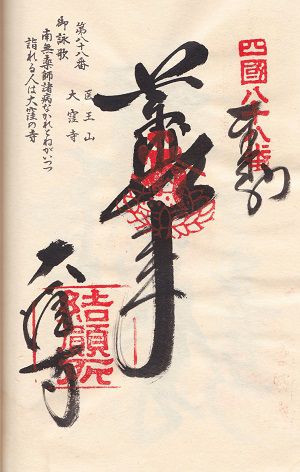 四國八十八番
奉納
薬師
大窪寺
結願所
第八十八番 医王山
大窪寺
御詠歌
南無薬師諸病なかれとねがいつつ
詣れる人は大窪の寺